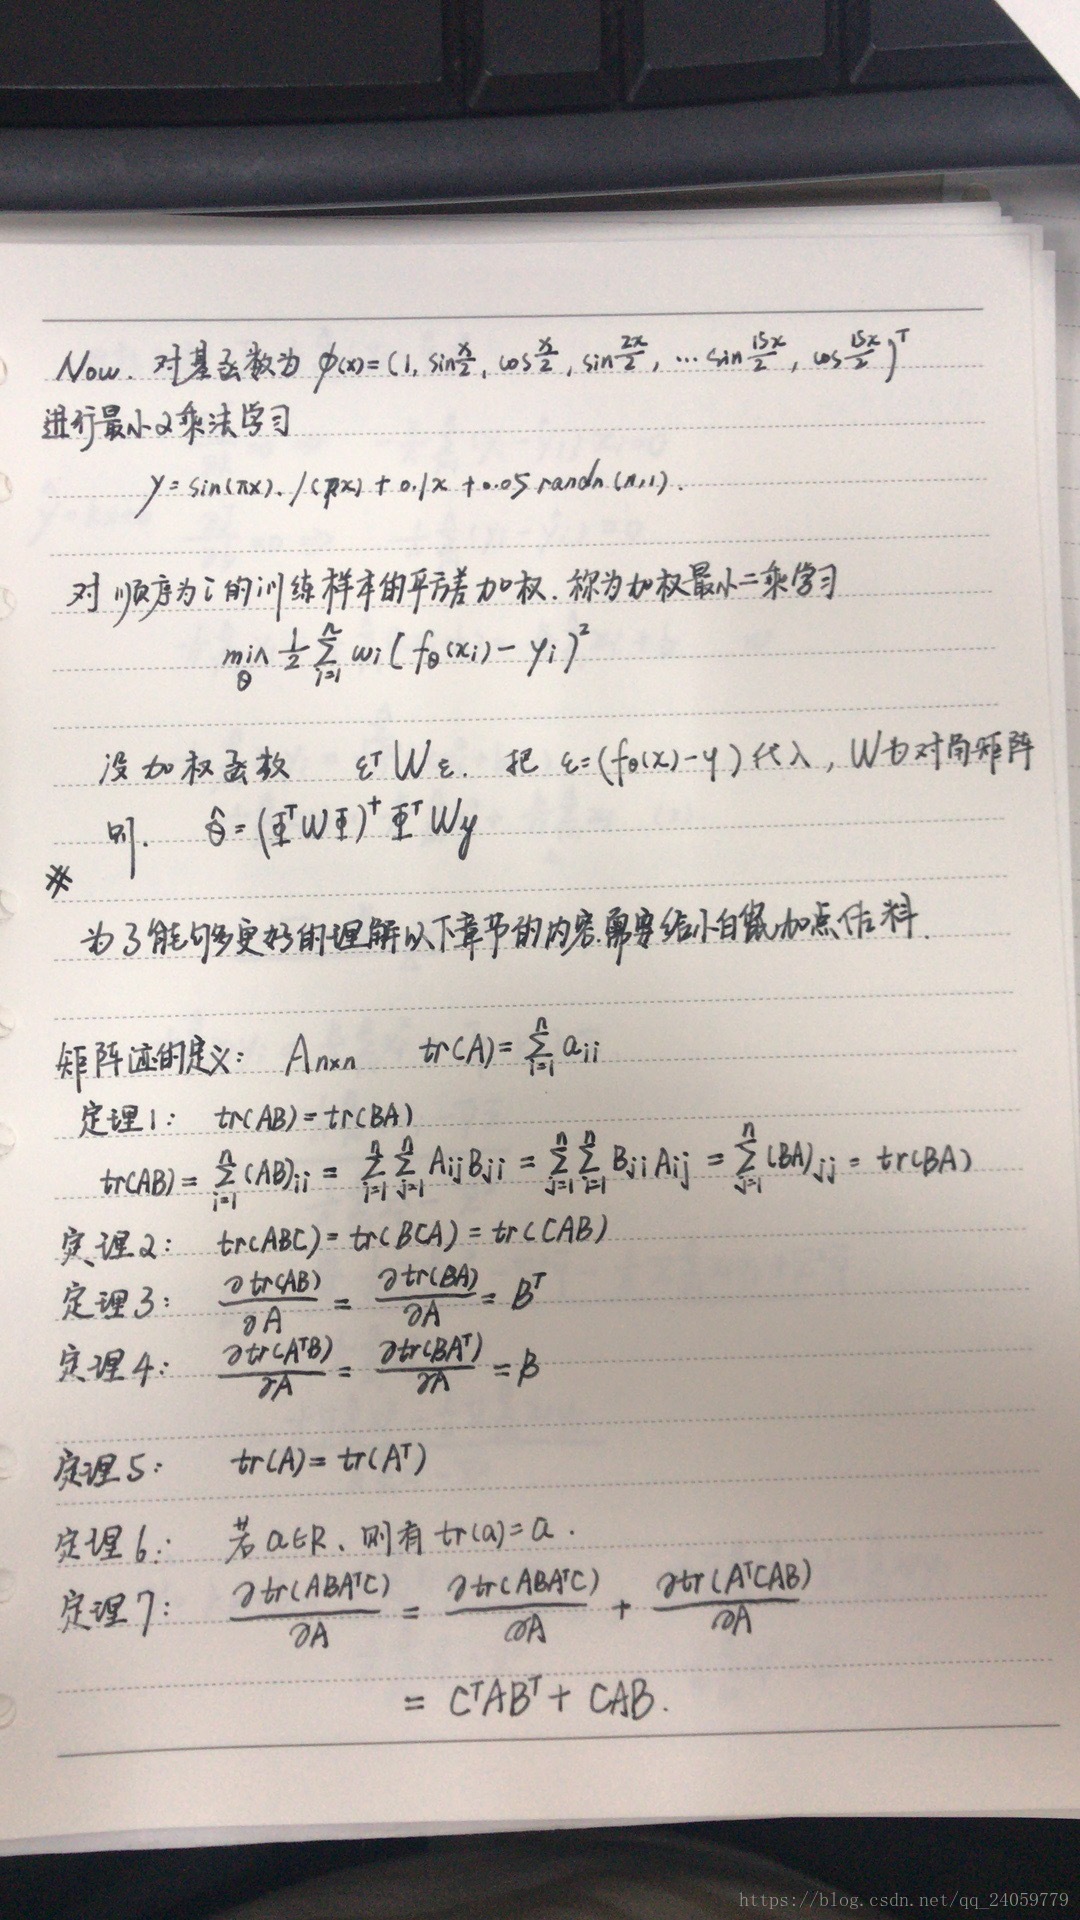 Now. 对基函数为 φ(x)=(1, sin x/2, cos x/2, sin 2x/2, ... sin 15x/2, cos 15x/2)ᵀ
进行最小2乘法学习
y = sin(πx)./(πx) + 0.1x + 0.05 randn(n,1).
对顺序为i的训练样本的平方差加权. 称为加权最小二乘学习
min_θ 1/2 Σ_{i=1}^{n} wi(fθ(xi) - yi)²
没加权函数 εᵀWε. 把 ε=(fθ(x)-y)代入, W为对角矩阵
则. θ̂ = (ΦᵀWΦ)⁺ΦᵀWy
※
为了能够更好的理解以下章节的内容.需要给小白鼠加点佐料.
矩阵迹的定义: Aₙₓₙ tr(A) = Σ_{i=1}^{n} aii
定理1: tr(AB)=tr(BA)
tr(AB) = Σ_{i=1}^{n} (AB)ii = Σ_{i=1}^{n} Σ_{j=1}^{n} Aij Bji = Σ_{j=1}^{n} Σ_{i=1}^{n} Bji Aij = Σ_{j=1}^{n} (BA)jj = tr(BA)
定理2: tr(ABC) = tr(BCA) = tr(CAB)
定理3: ∂tr(AB)/∂A = ∂tr(BA)/∂A = Bᵀ
定理4: ∂tr(AᵀB)/∂A = ∂tr(BAᵀ)/∂A = B
定理5: tr(A) = tr(Aᵀ)
定理6: 若a∈R、则有 tr(a)=a.
定理7: ∂tr(ABAᵀC)/∂A = ∂tr(ABAᵀC)/∂A + ∂tr(AᵀCAB)/∂A
= CᵀABᵀ + CAB.
https://blog.csdn.net/qq_24059779